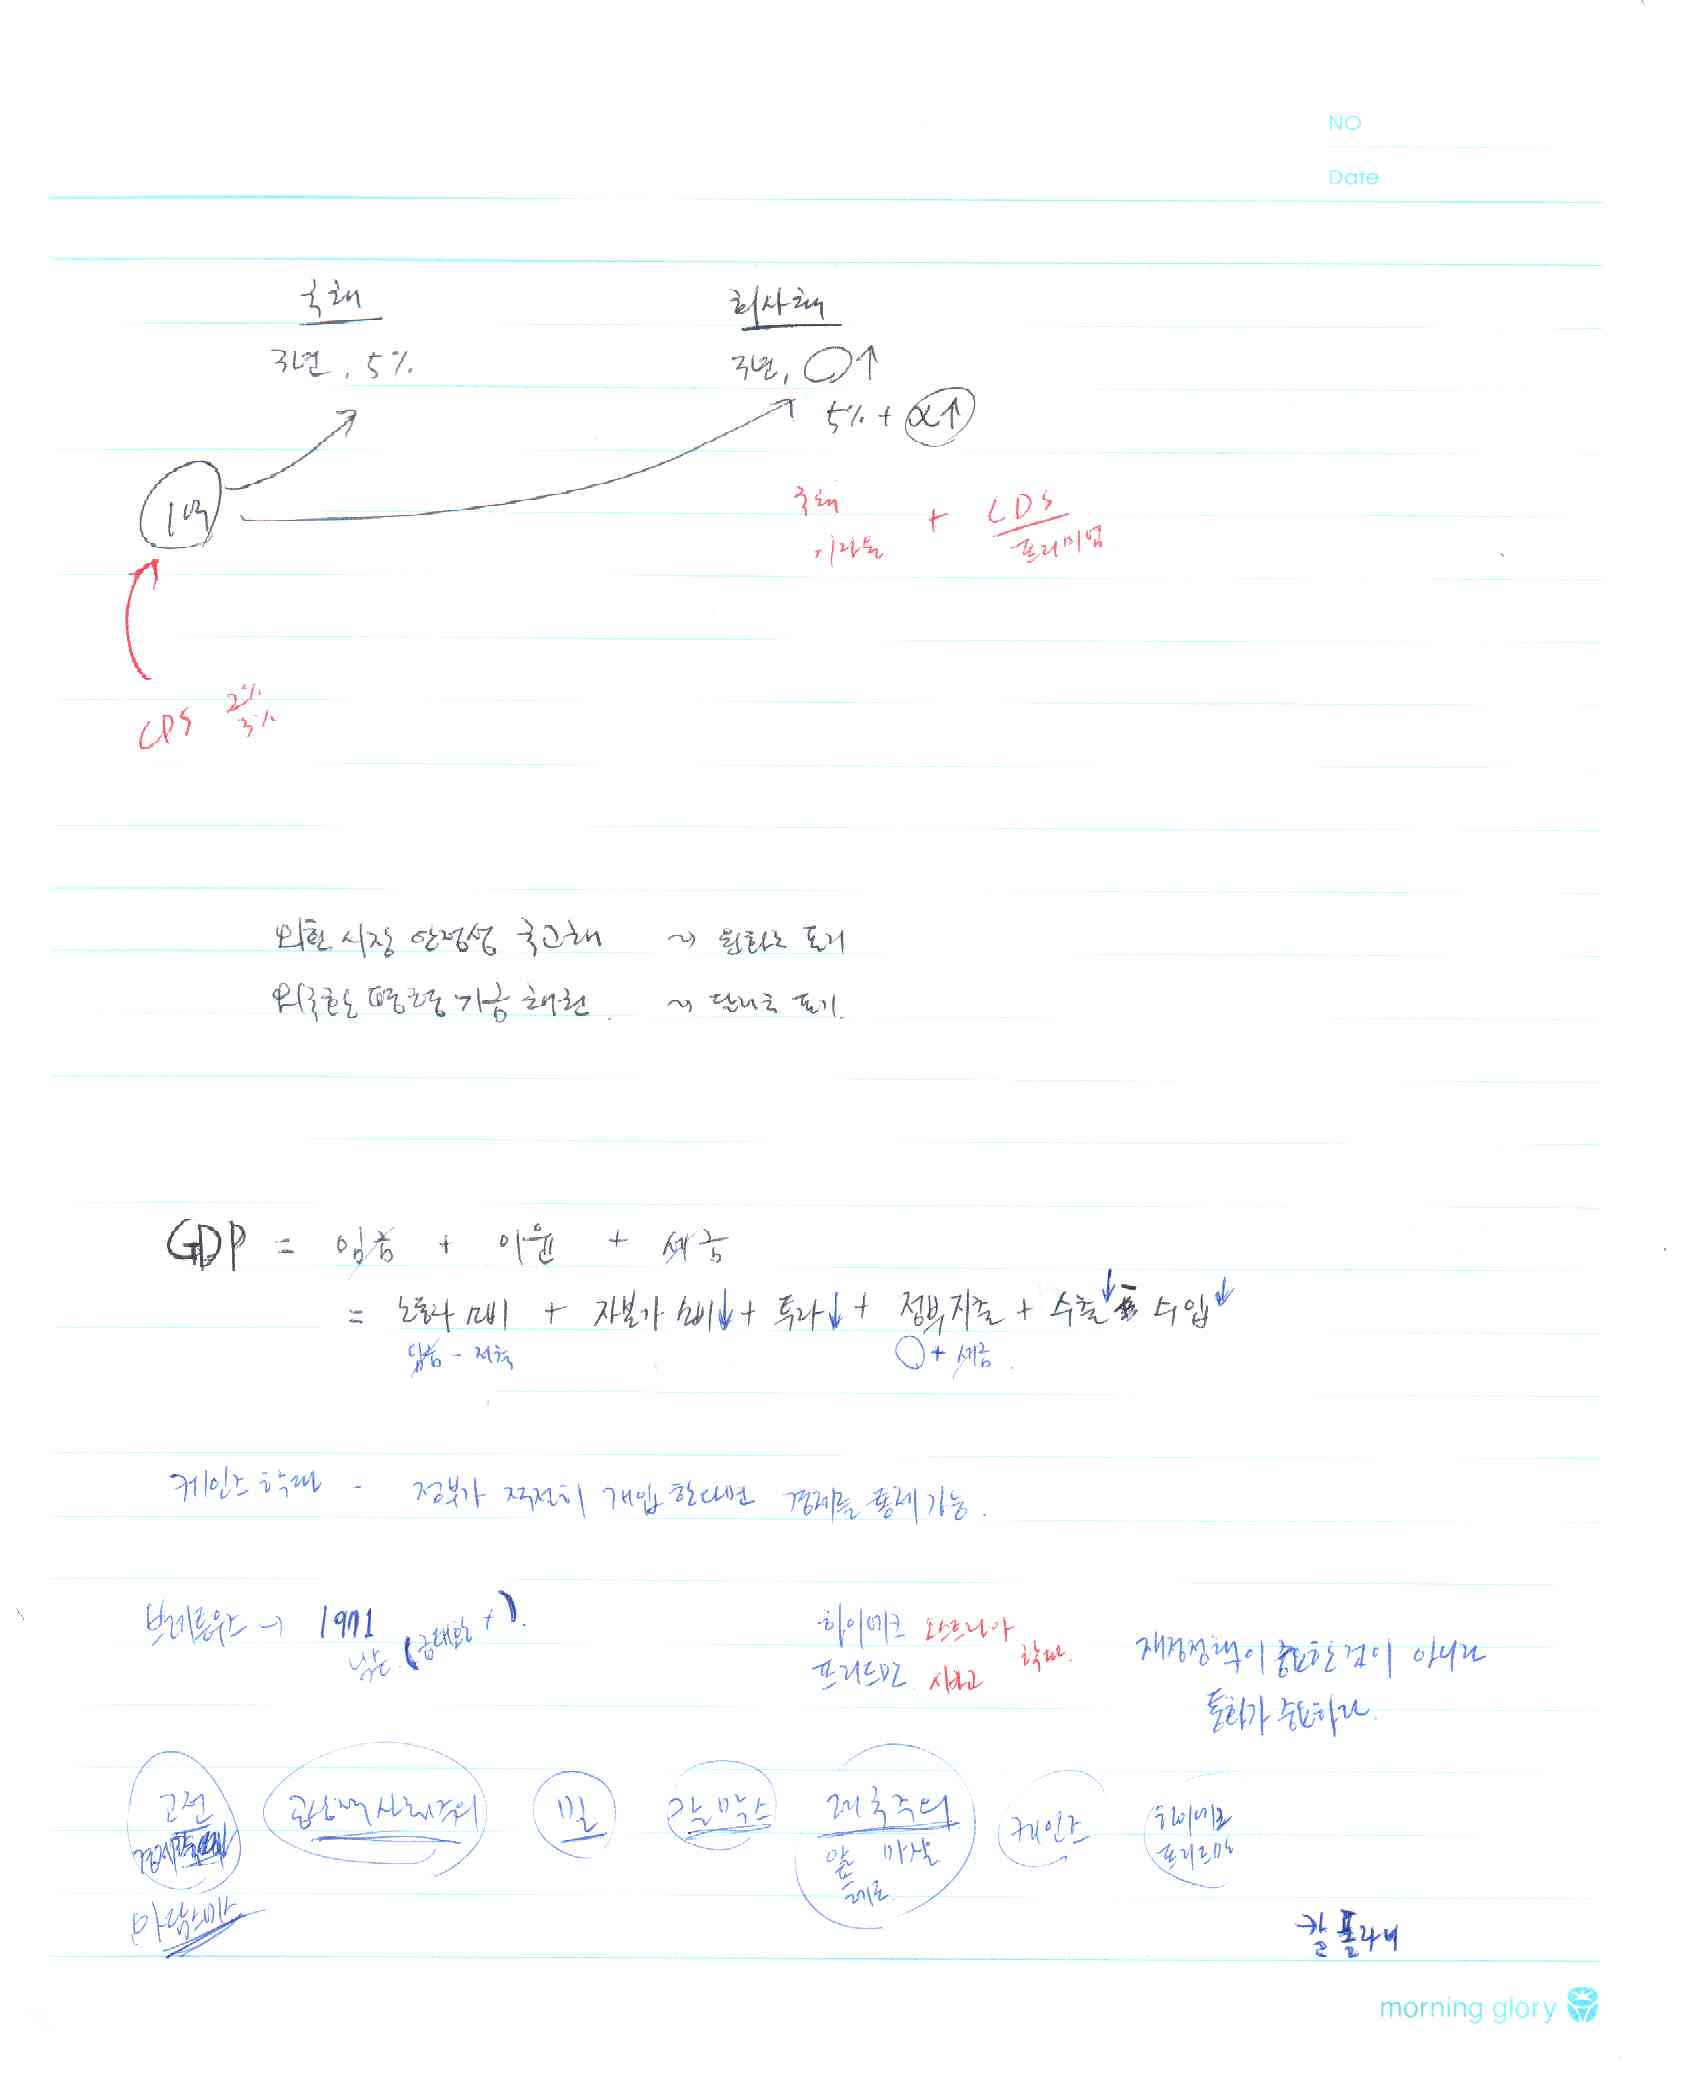 NO
Date
국채 회사채
3년, 5% 3년, ○↑
5% + α↑
1억
국채 + CDS
이자율 프리미엄
CDS 2%
3%
외환 시장 안정성 국고채 ~> 원화로 표기
외국환 평형 기금 채권. ~> 달러로 표기.
GDP = 임금 + 이윤 + 세금
= 노동자 소비 + 자본가 소비↓ + 투자↓ + 정부지출 + 수출↓ - 수입↓
임금 - 저축 ○ + 세금.
케인즈 학파 - 정부가 적절히 개입한다면 경제를 통제 가능.
브레튼우즈 → 1971 하이에크 오스트리아 학파
닉슨 (금태환 x). 프리드만 시카고
재정정책이 중요한 것이 아니라
통화가 중요하다.
고전 공상적 사회주의 밀 칼 막스 제국주의 케인즈 하이에크
경제학 알프레드 마샬 프리드만
아담스미스
칼 폴라니
morning glory